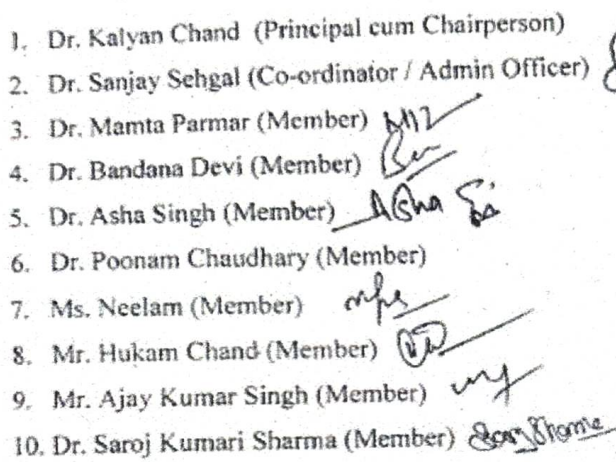 1. Dr. Kalyan Chand (Principal cum Chairperson)
2. Dr. Sanjay Sehgal (Co-ordinator / Admin Officer)
3. Dr. Mamta Parmar (Member)
4. Dr. Bandana Devi (Member)
5. Dr. Asha Singh (Member) Asha
6. Dr. Poonam Chaudhary (Member)
7. Ms. Neelam (Member)
8. Mr. Hukam Chand (Member)
9. Mr. Ajay Kumar Singh (Member)
10. Dr. Saroj Kumari Sharma (Member)